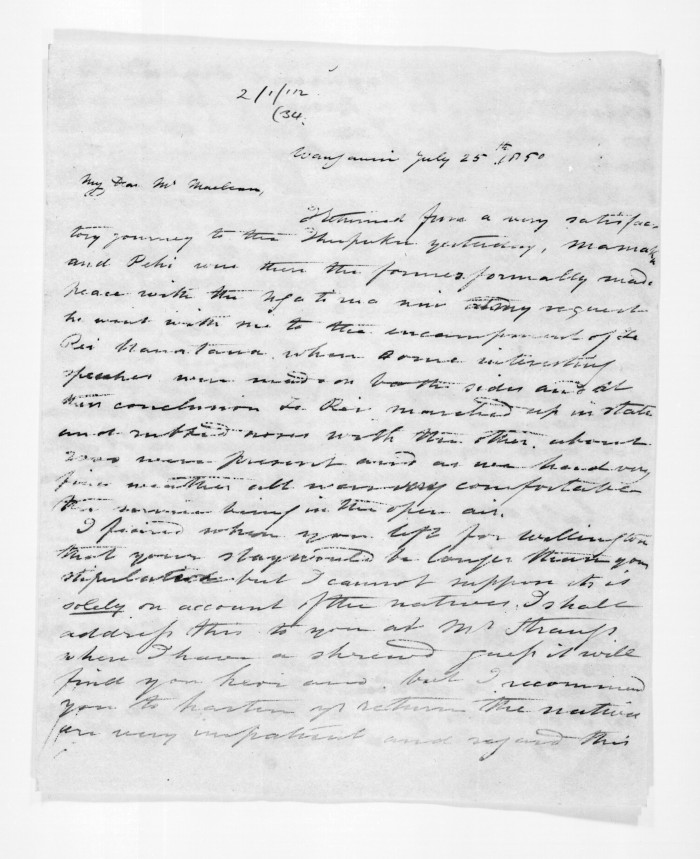 2/1/112
(34.
Wanganui July 25th 1850
My Dear Mr Maclean,
I returned from a very satisfac-
tory journey to the yesterday, Mamaku
and Pehi were there the former formally made
peace with the Ngatirua nui at my request
he went with me to the encampment of Te
Rei Hanataua when some interesting
speeches were made on both sides and at
their conclusion Te Rei marched up in state
and rubbed noses with the other. about
were present and as we had very
fine weather all was very comfortable
the service being in the open air.
I feared when you left for Wellington
that your stay would be longer than you
stipulated but I cannot suppose it is
solely on account of the natives, I shall
address this to you at Mr Strangs
where I have a shrewd guess it will
find you but I recommend
you to hasten yr return the natives
are very impatient and regard this